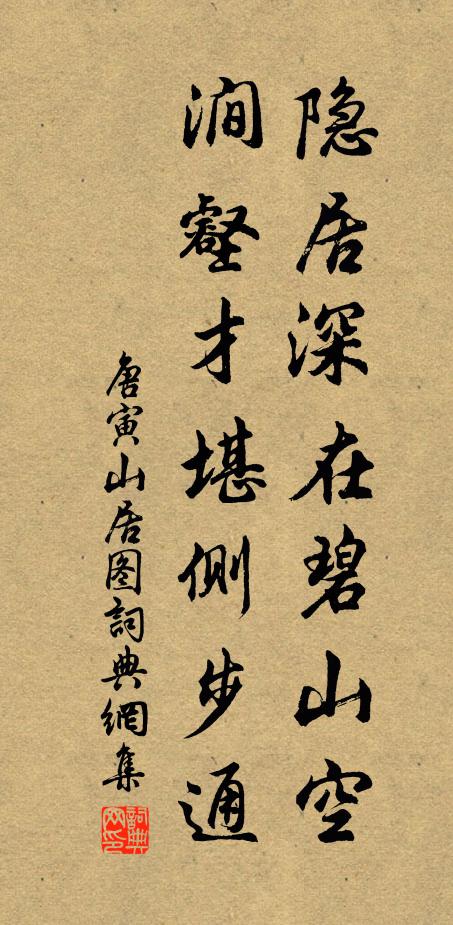 隐居深在碧山空
涧壑才堪侧步通
唐寅山居图词典网集
词典网印